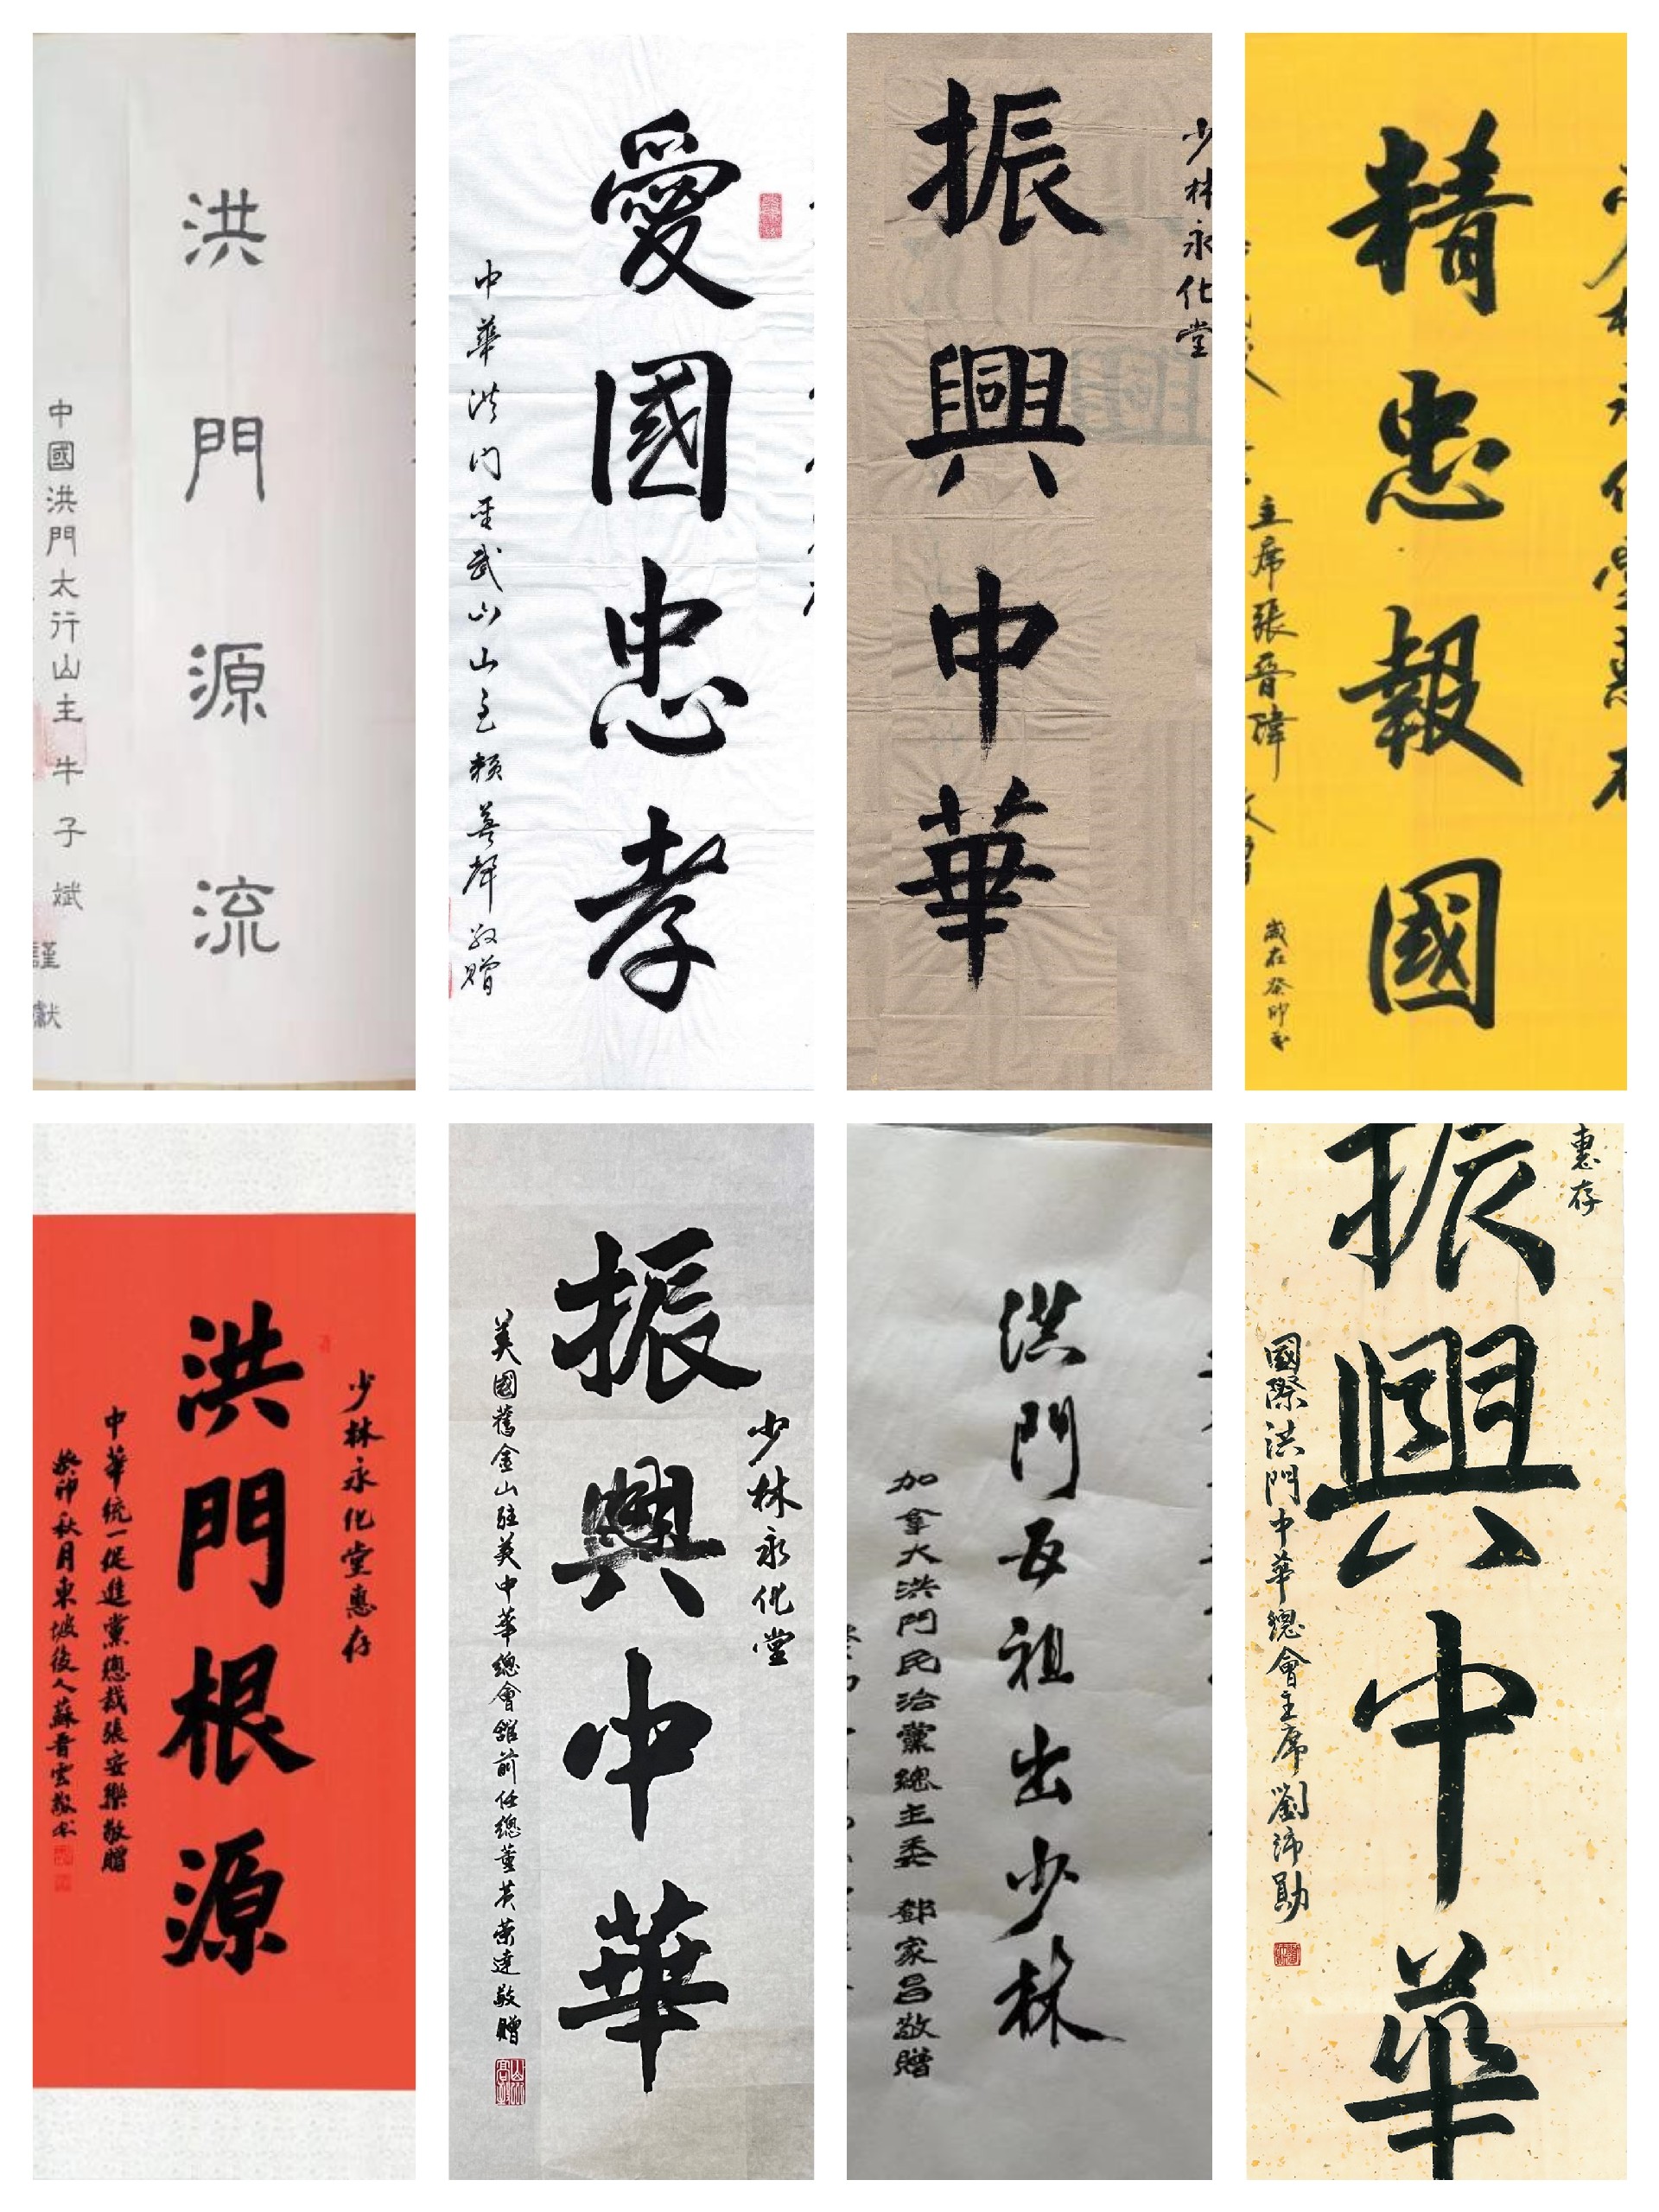 洪門源流
中國洪門太行山主 牛子斌 謹獻
愛國忠孝
中華洪门圣武山山主賴善聲敬贈
少林永化堂
振興中華
精忠報國
主席張晉瑋
歲在癸卯
少林永化堂惠存
洪門根源
中華統一促進黨總裁張安樂敬贈
癸卯秋月東坡後人蘇晋雲敬书
少林永化堂
振興中華
美國舊金山駐美中華總會館前任總董黃榮達敬贈
洪門每祖出少林
加拿大洪門民治黨總主委 鄧家昌敬贈
惠存
振興中華
國際洪門中華總會主席劉沛勛